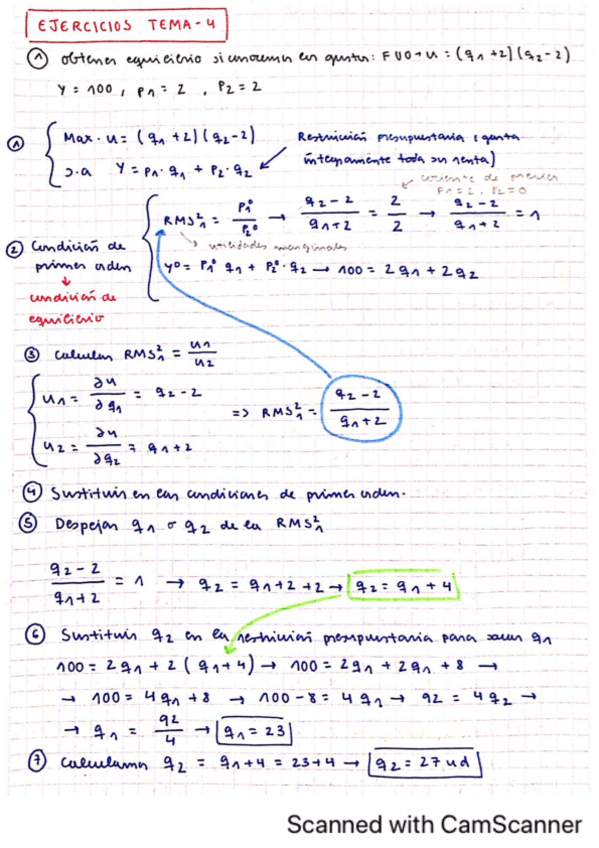 EJERCICIOS TEMA-4
① Obtener equilibrio si conocemos los gustos: F UO → u = (q1 +2)(q2-2)
Y = 100, p1 = 2, P2 = 2
① { Max. u = (q1 +2)(q2-2)
s.a Y = P1·q1 + P2·q2
Restricción presupuestaria (gasta
íntegramente toda su renta)
cociente de precios
P1=2, P2=0
② Condición de
primer orden
↓
condición de
equilibrio
RMS²₁ = P1⁰/P2⁰ → (q2-2)/(q1+2) = 2/2 → (q2-2)/(q1+2) = 1
→ utilidades marginales
Y⁰ = P1⁰ q1 + P2⁰·q2 → 100 = 2q1 + 2q2
③ Calcular RMS²₁ = u1/u2
u1 = ∂u/∂q1 = q2-2
=> RMS²₁ = (q2-2)/(q1+2)
u2 = ∂u/∂q2 = q1+2
④ Sustituir en las condiciones de primer orden.
⑤ Despejar q1 o q2 de la RMS²₁
(q2-2)/(q1+2) = 1 → q2 = q1+2+2 → q2 = q1+4
⑥ Sustituir q2 en la restricción presupuestaria para sacar q1
100 = 2q1 + 2(q1+4) → 100 = 2q1 + 2q1 + 8 →
→ 100 = 4q1 +8 → 100-8 = 4q1 → 92 = 4q2 →
→ q1 = 92/4 → q1 = 23
⑦ Calculamos q2 = q1+4 = 23+4 → q2 = 27 ud
Scanned with CamScanner